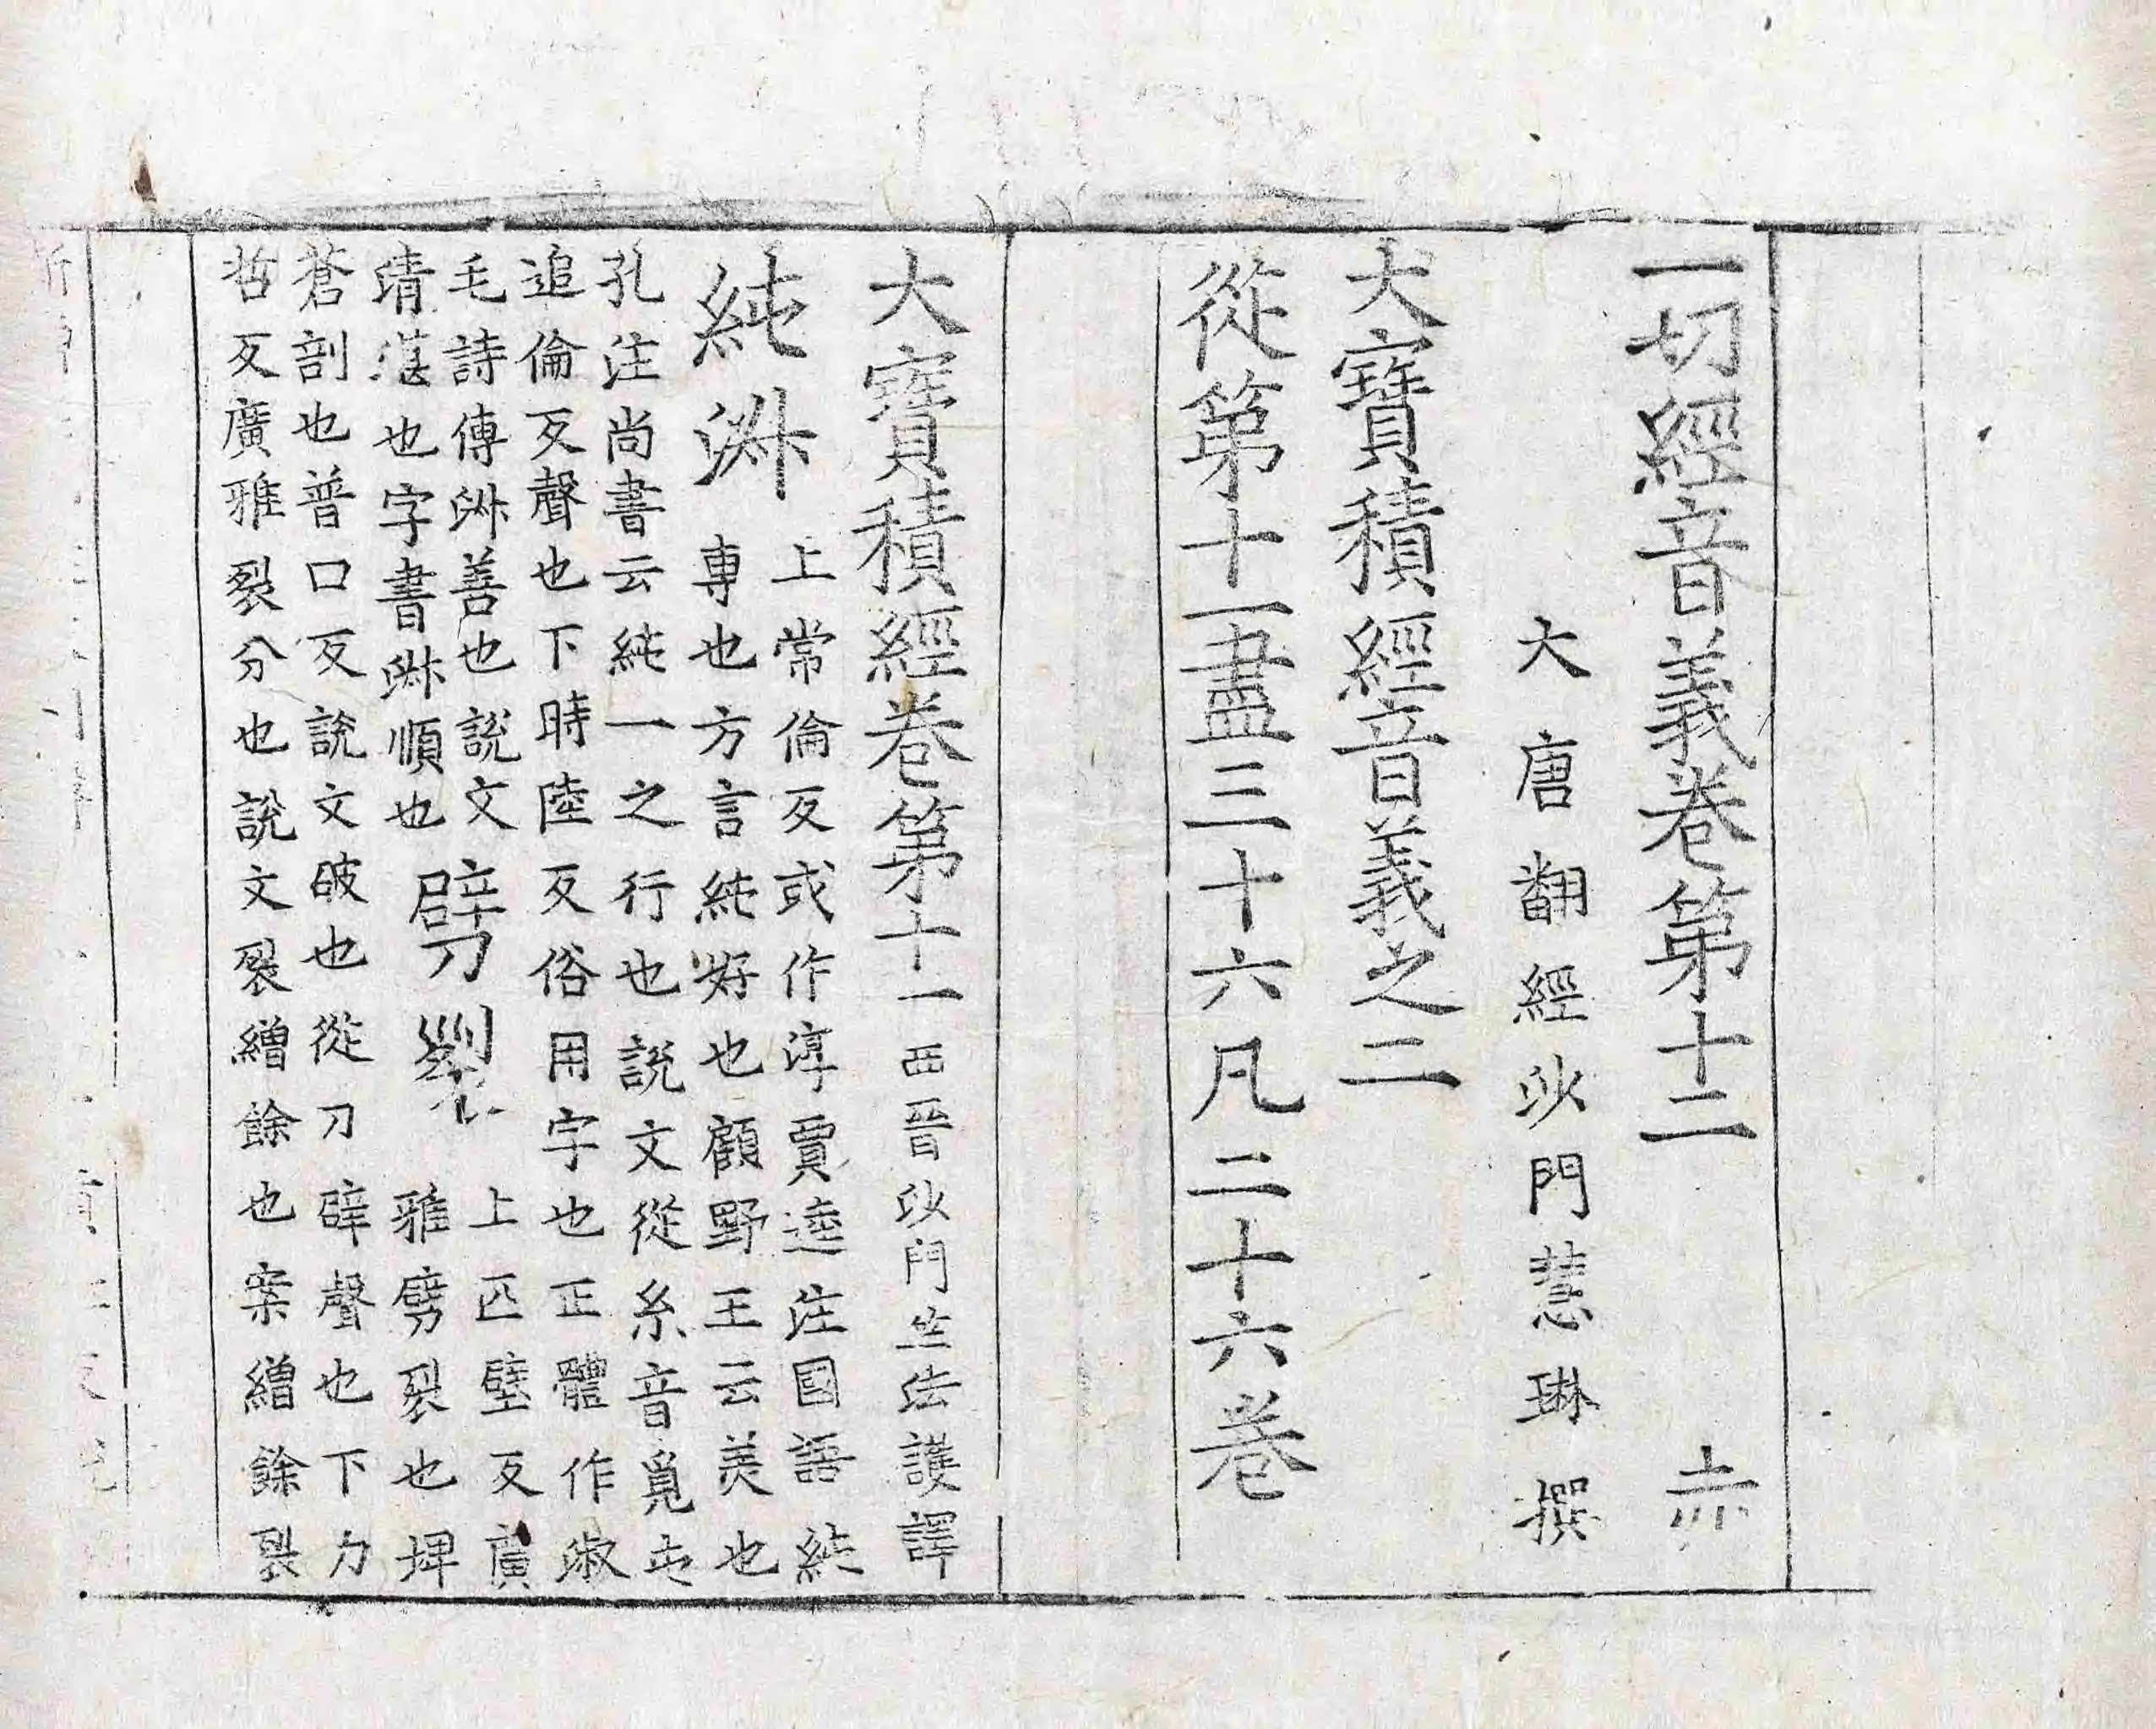 一切經音義卷第十二　赤
大唐翻經沙門慧琳撰
大寶積經音義之二
從第十一盡三十六凡二十六卷
大寶積經卷第十一西晉沙門竺法護譯
純淑
上常倫反或作淳賈逵注國語純
專也方言純好也顧野王云美也
孔注尚書云純一之行也說文從糸音覓屯
追倫反聲也下時陸反俗用字也正體作淑
毛詩傳淑善也說文
清湛也字書淑順也
劈裂
上匹壁反廣
雅劈裂也埤
蒼剖也普口反說文破也從刀辟聲也下力
哲反廣雅裂分也說文裂繒餘也案繒餘裂